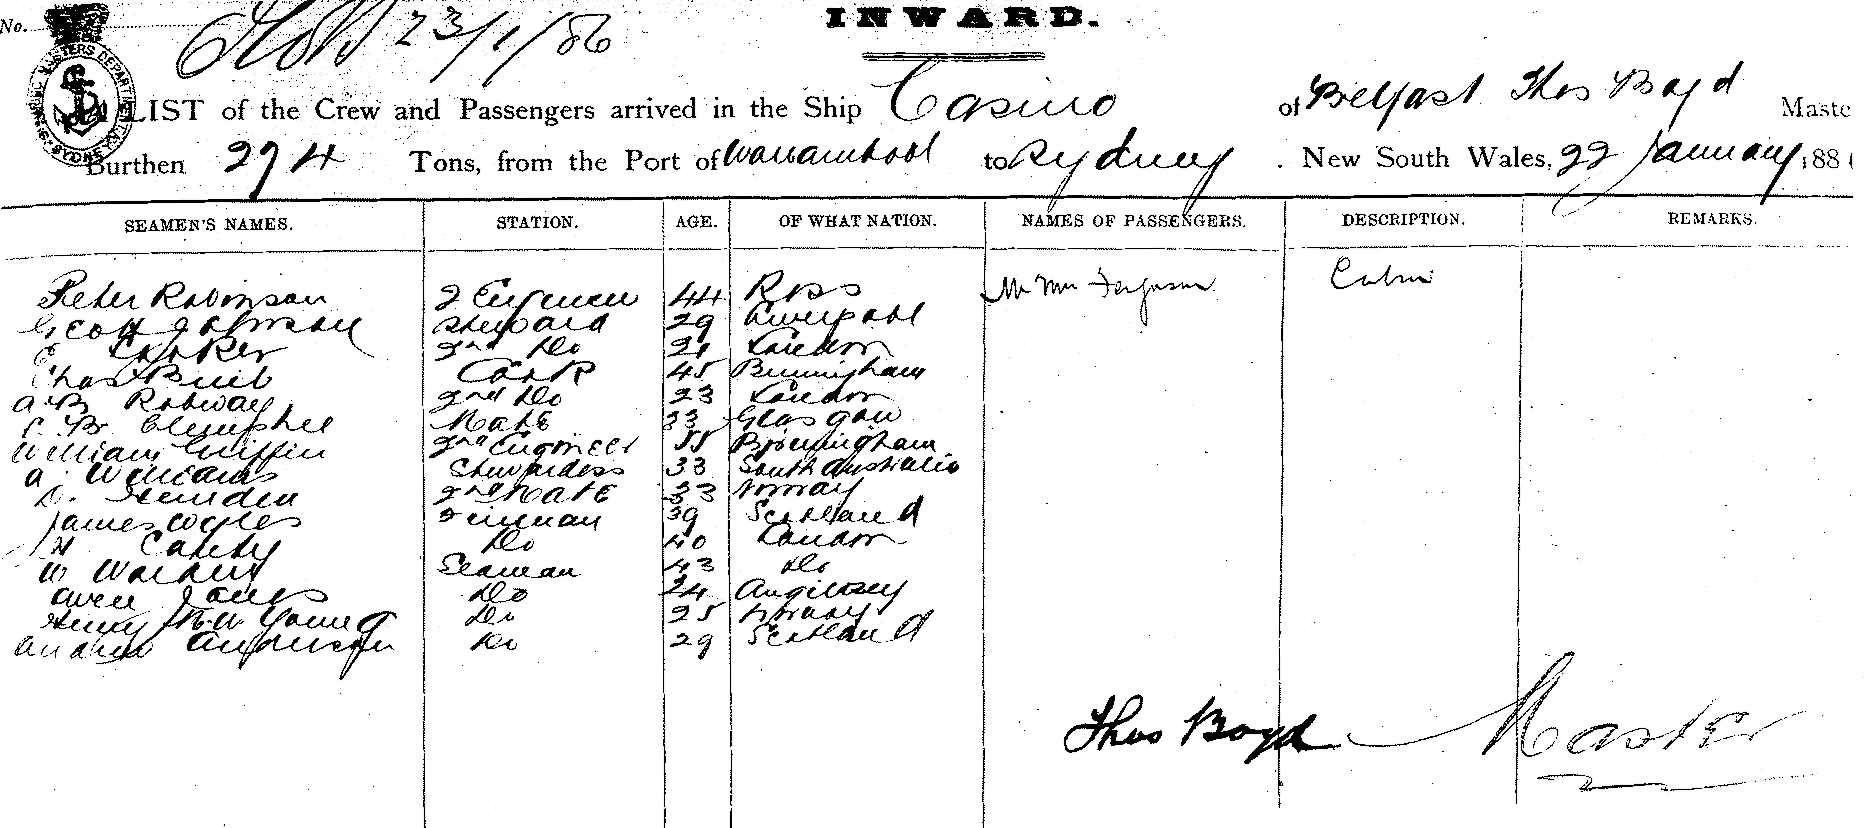 No.
23/1/86
INWARD.
LIST of the Crew and Passengers arrived in the Ship Casino of Belfast Thos Boyd Maste
Burthen 274 Tons, from the Port of Warrambool to Sydney. New South Wales, 22 January, 188
SEAMEN'S NAMES. STATION. AGE. OF WHAT NATION. NAMES OF PASSENGERS. DESCRIPTION. REMARKS.
Peter Robinson 2 Engineer 44 Ross Mr Mrs Ferguson Cabin
Scott Johnson Steward 29 Liverpool
Cooker 2nd Do 21 London
Chas Cook 45 Birmingham
A. B. Robway 2nd Do 23 London
Mate 33 Glasgow
William Griffin 2nd Engineer 55 Birmingham
A Williams Stewardess 33 South Australia
D. 2nd Mate 33 Norway
James Fireman 39 Scotland
H Canty Do 40 London
W Seaman 43 Do
Owen Jones Do 24 Anglesey
Henry Young Do 25 Norway
Andrew Anderson Do 29 Scotland
Thos Boyd Master